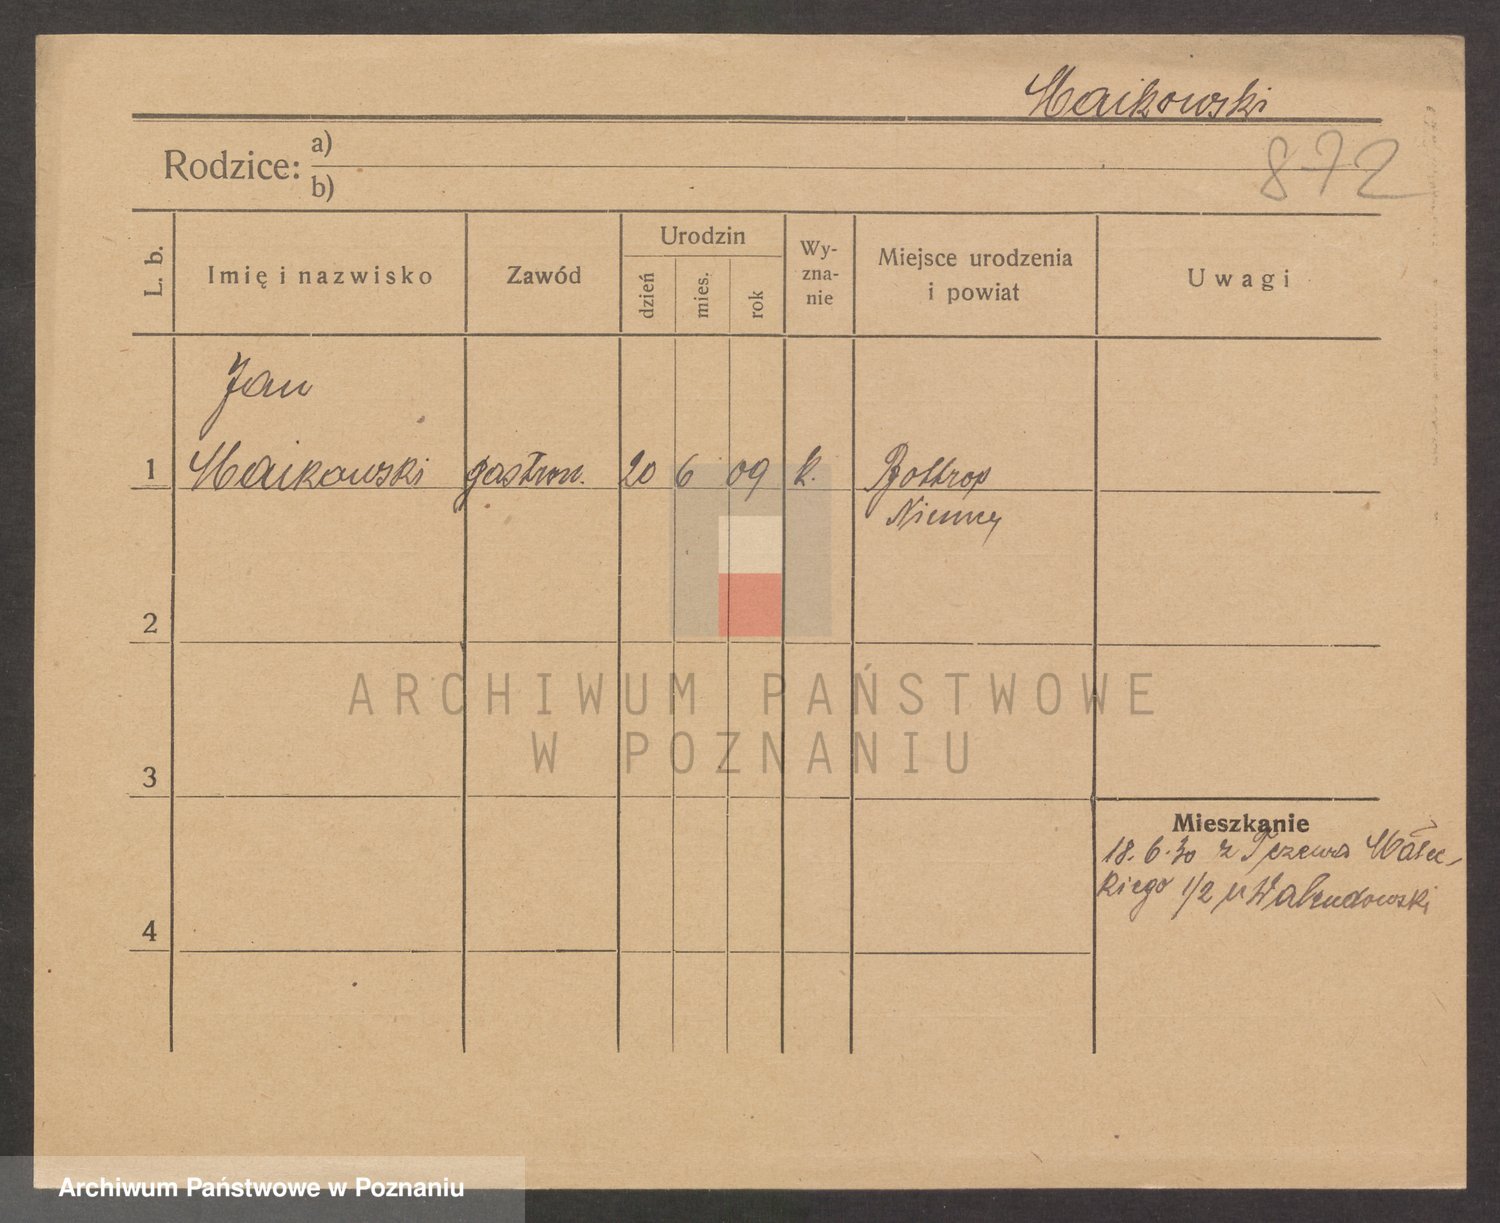 Maikowski
872
Rodzice: a)
b)
L. b.
Imię i nazwisko
Zawód
Urodzin
dzień
mies.
rok
Wy-
zna-
nie
Miejsce urodzenia
i powiat
Uwagi
Jan
1 Maikowski gastron. 20 6 09 k. Bottrop
Niemcy
2
ARCHIWUM PAŃSTWOWE
W POZNANIU
3
Mieszkanie
18. 6. 30 z Tczewa Małec-
kiego 1/2 u
4
Archiwum Państwowe w Poznaniu